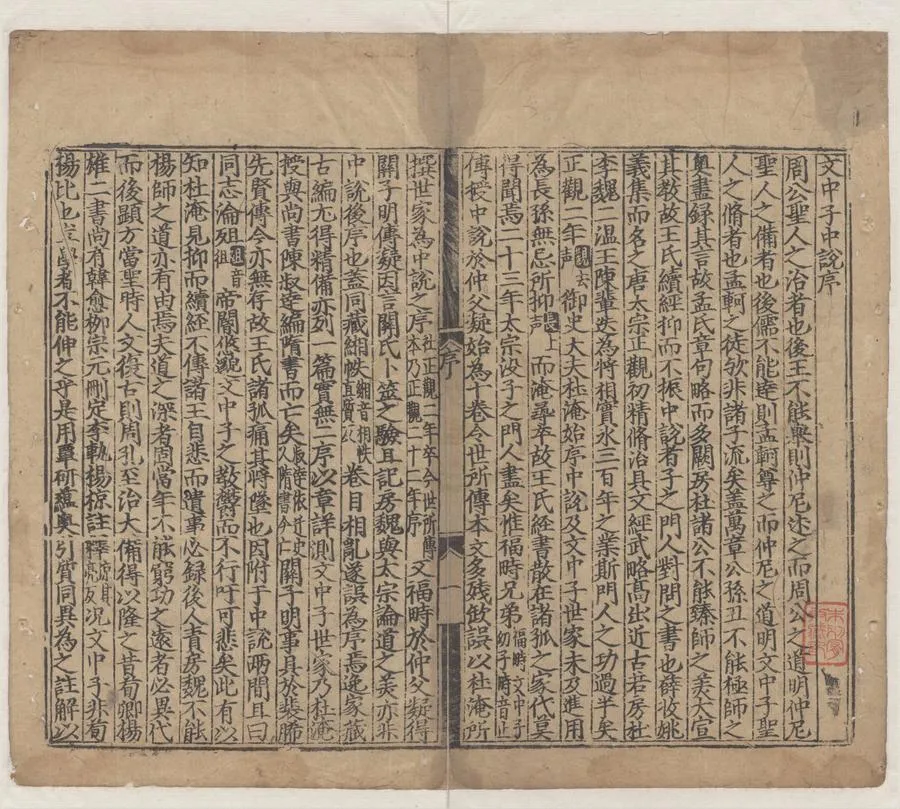 文中子中說序
周公聖人之治者也後王不能舉則仲尼述之而周公之道明仲尼
聖人之備者也後儒不能達則孟軻尊之而仲尼之道明文中子聖
人之脩者也孟軻之徒歟非諸子流矣蓋萬章公孫丑不能極師之
奧盡録其言故孟氏章句略而多闕房杜諸公不能臻師之美大宣
其教故王氏續經抑而不振中說者子之門人對問之書也薛收姚
義集而名之唐太宗正觀初精脩治具文經武略髙出近古若房杜
李魏二温王陳輩迭為將相實永三百年之業斯門人之功過半矣
正觀二年觀去声御史大夫杜淹始序中說及文中子世家未及進用
為長孫無忌所抑長上声而淹尋卒故王氏經書散在諸孤之家代莫
得聞焉二十三年太宗没子之門人盡矣惟福畤兄弟福畤文中子幼子畤音止
傳授中說於仲父凝始為十卷今世所傳本文多殘缺誤以杜淹所
序
一
撰世家為中說之序杜正觀二年卒今世所傳本乃正觀二十二年序又福畤於仲父凝得
關子明傳凝因言關氏卜筮之驗且記房魏與太宗論道之美亦非
中說後序也蓋同藏緗帙緗音相帙直質反卷目相亂遂誤為序焉逸家藏
古編尤得精備亦列一篇實無二序以章詳測文中子世家乃杜淹
授與尚書陳叔達編隋書而亡矣關子明事具於裴晞
先賢傳今亦無存故王氏諸孤痛其將墜也因附于中說兩間且曰
同志淪殂殂音徂帝閽悠邈文中子之教鬱而不行吁可悲矣此有以
知杜淹見抑而續經不傳諸王自悲而遺事必録後人責房魏不能
楊師之道亦有由焉夫道之深者固當年不能窮功之遠者必異代
而後顯方當聖時人文復古則周孔至治大備得以隆之昔荀卿楊
雄二書尚有韓愈柳宗元刪定李軌楊倞註釋況文中子非荀
楊比也學者不能伸之乎是用覃研蘊奧引質同異為之註解以